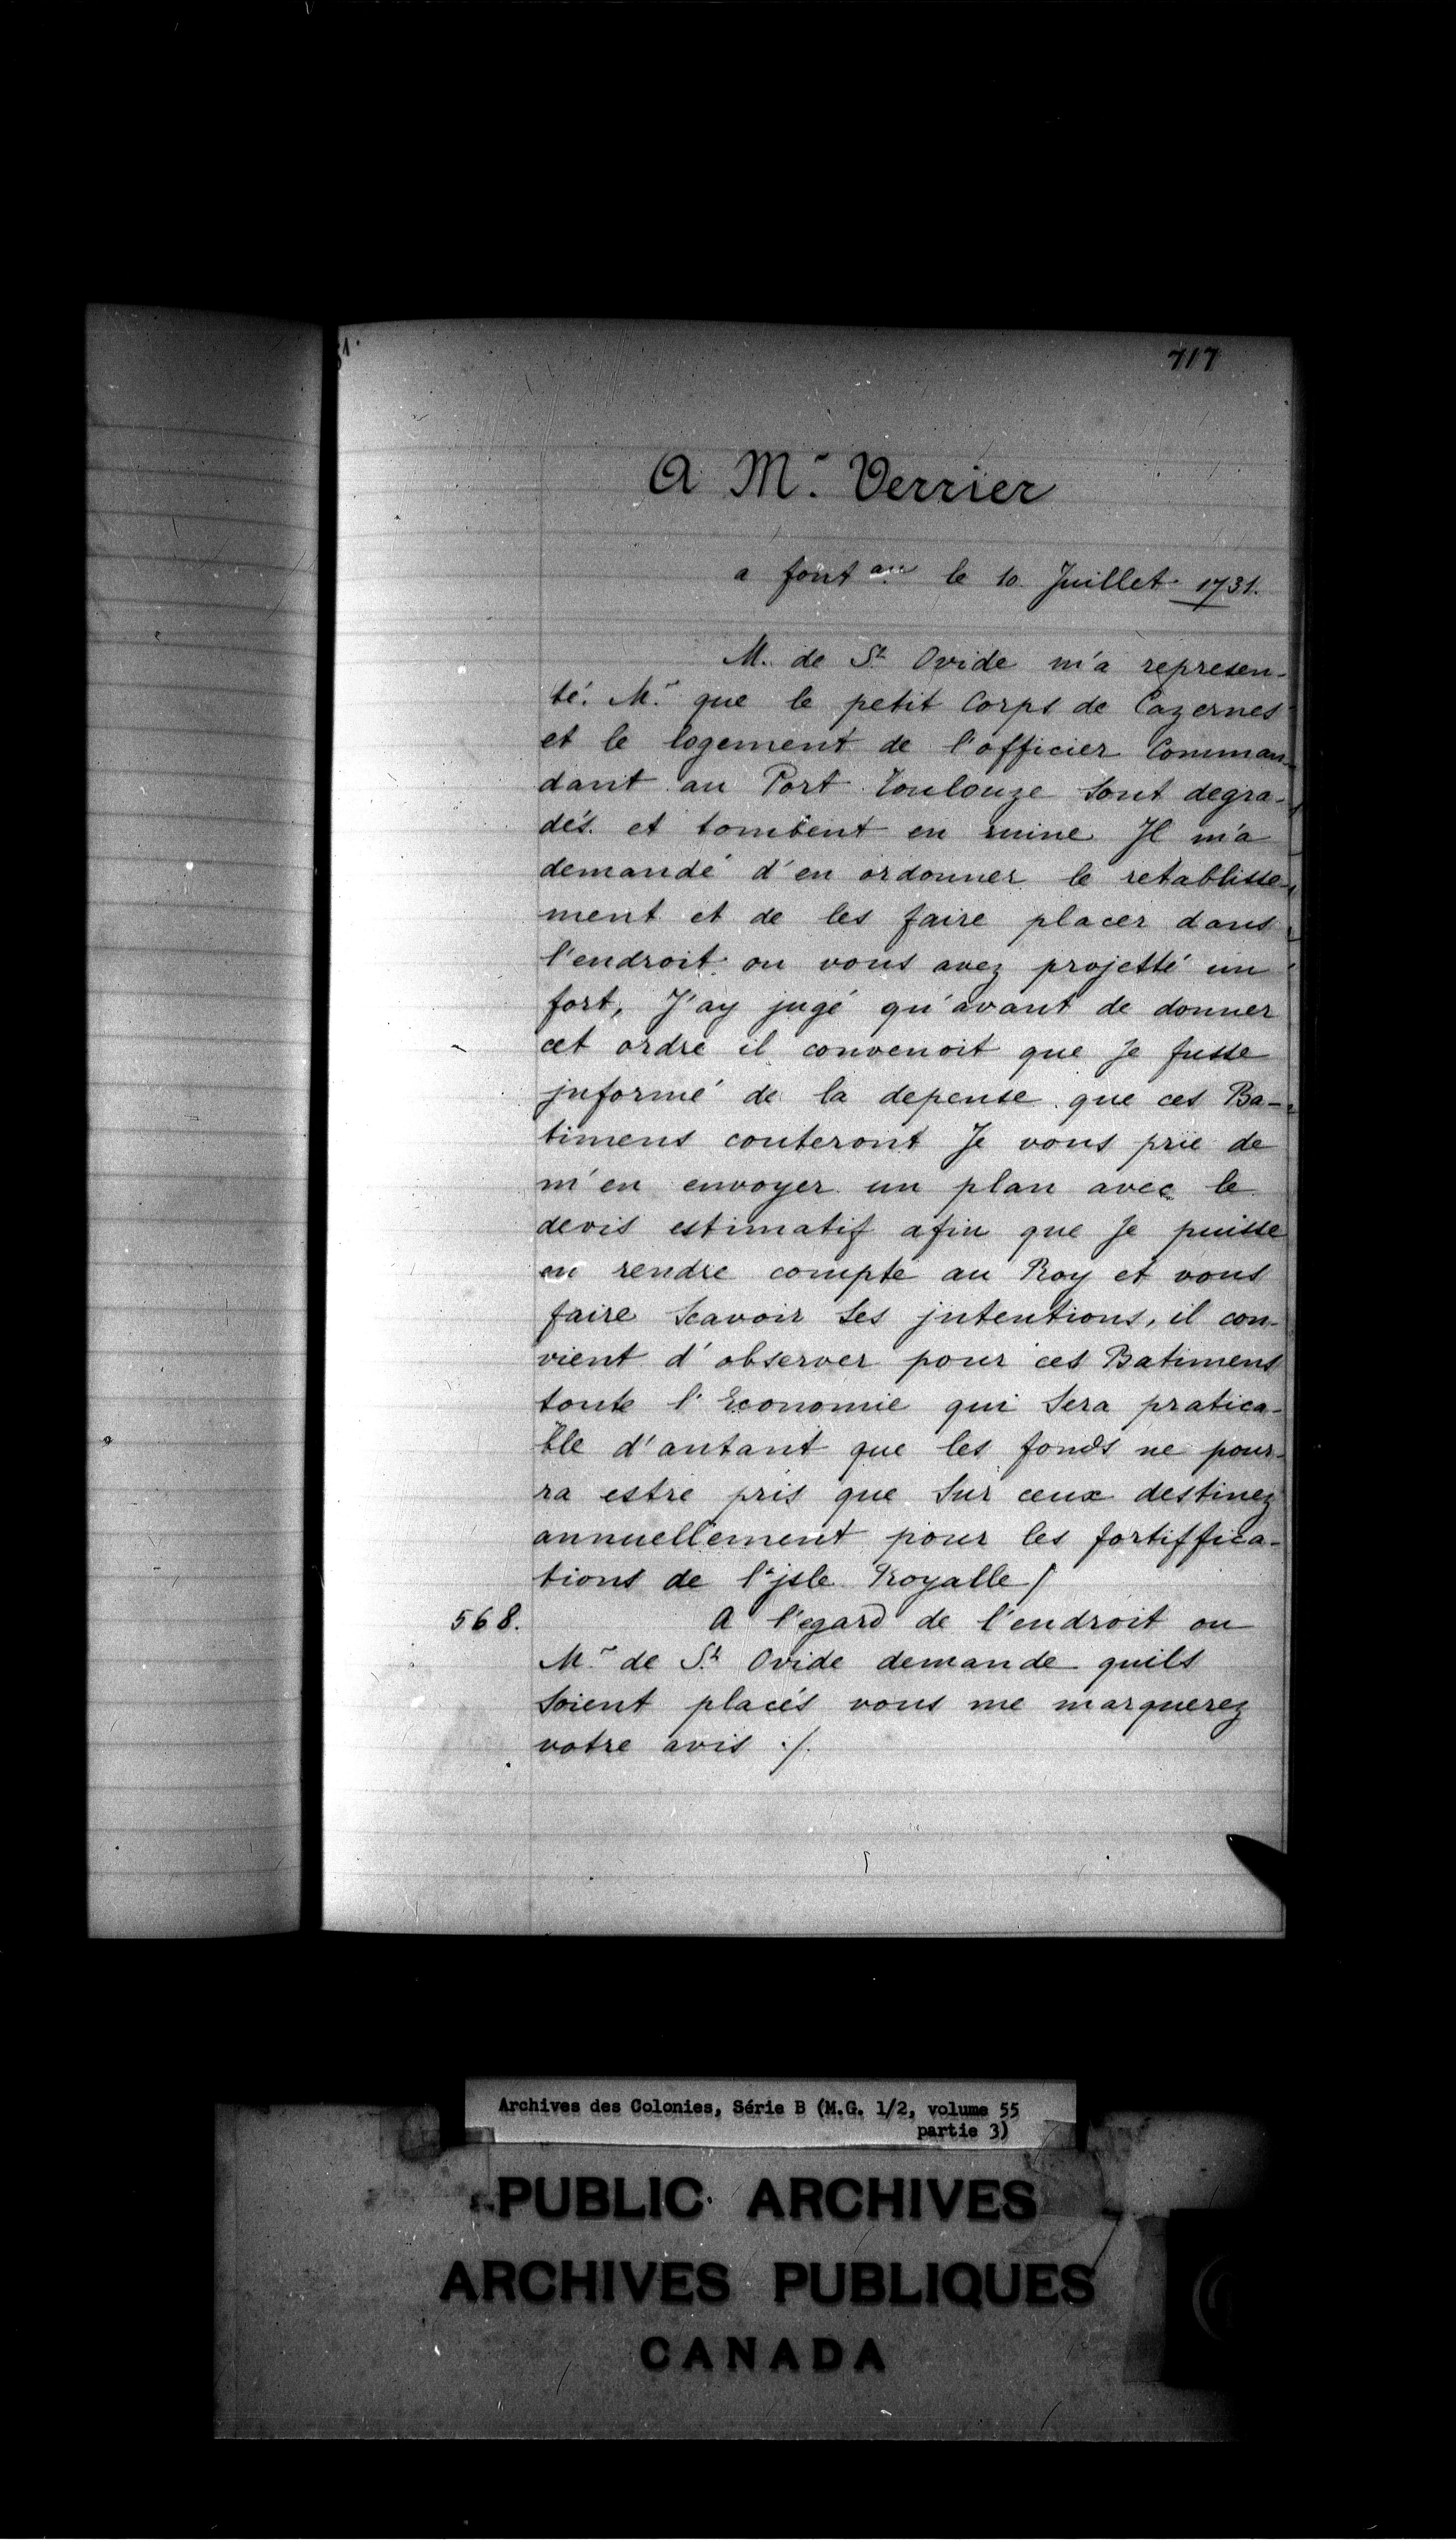 717
A Mr. Verrier
a font.au le 10 Juillet 1731.
M. de St. Ovide m'a represen-
té. Mr. que le petit Corps de Cazernes
et le logement de l'officier Comman-
dant au Port Toulouze sont degra-
dés. et tombent en ruine Il m'a
demandé d'en ordonner le retablisse-
ment et de les faire placer dans
l'endroit ou vous avez projetté un
fort, J'ay jugé qu'avant de donner
cet ordre il convenoit que Je fusse
jnformé de la depense que ces Ba-
timens couteront Je vous prie de
m'en envoyer un plan avec le
devis estimatif afin que Je puisse
en rendre compte au Roy et vous
faire scavoir ses jntentions, il con-
vient d'observer pour ces Batimens
toute l'Economie qui sera pratica-
ble d'autant que les fonds ne pour-
ra estre pris que sur ceux destinez
annuellement pour les fortiffica-
tions de l'jsle Royalle /
568. A l'egard de l'endroit ou
Mr. de St. Ovide demande quils
soient placés vous me marquerez
votre avis ./.
Archives des Colonies, Série B (M.G. 1/2, volume 55
partie 3)
PUBLIC ARCHIVES
ARCHIVES PUBLIQUES
CANADA